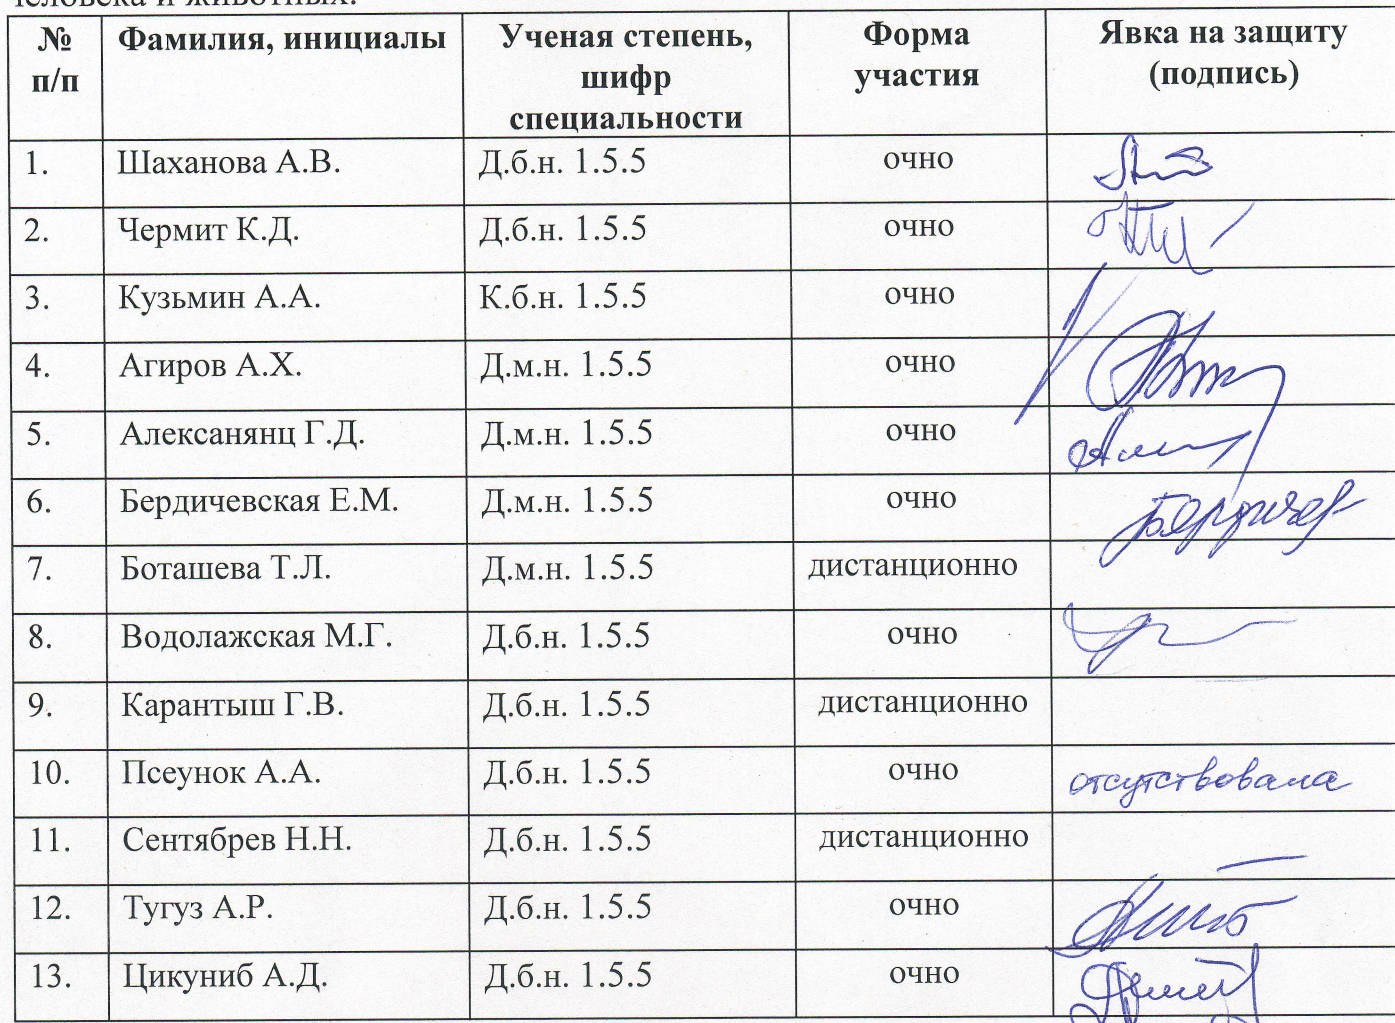 человека и животных.
№ п/п Фамилия, инициалы Ученая степень, шифр специальности Форма участия Явка на защиту (подпись)
1. Шаханова А.В. Д.б.н. 1.5.5 очно
2. Чермит К.Д. Д.б.н. 1.5.5 очно
3. Кузьмин А.А. К.б.н. 1.5.5 очно
4. Агиров А.Х. Д.м.н. 1.5.5 очно
5. Алексанянц Г.Д. Д.м.н. 1.5.5 очно
6. Бердичевская Е.М. Д.м.н. 1.5.5 очно
7. Боташева Т.Л. Д.м.н. 1.5.5 дистанционно
8. Водолажская М.Г. Д.б.н. 1.5.5 очно
9. Карантыш Г.В. Д.б.н. 1.5.5 дистанционно
10. Псеунок А.А. Д.б.н. 1.5.5 очно отсутствовала
11. Сентябрев Н.Н. Д.б.н. 1.5.5 дистанционно
12. Тугуз А.Р. Д.б.н. 1.5.5 очно
13. Цикуниб А.Д. Д.б.н. 1.5.5 очно